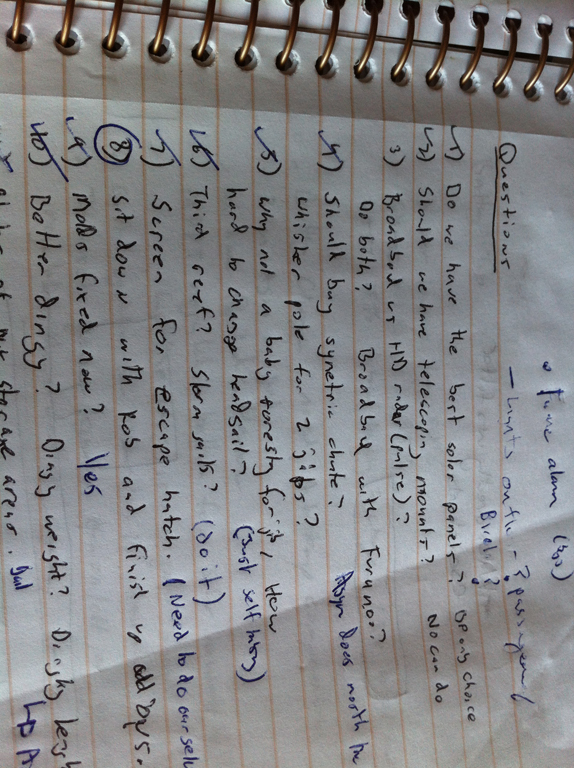 Fume alarm
Questions
1) Do we have the best solar panels? only choice
2) Should we have telescoping mounts? No can do
3) Broadband vs HD radar (pulse)?
Do both? Broadband with Furuno?
4) Should buy symetric chute? Asym does
whisker pole for 2 jibs?
5) Why not a baby forestay for jib, How
hard to change headsail? (Just self
6) Third reef? Storm sails? (do it)
7) Screen for escape hatch. (Need to do our
8) sit down with Rob and finish up
9) Molds fixed now? Yes
10) Better dingy? Dingy weight? Dingky
storage areas.